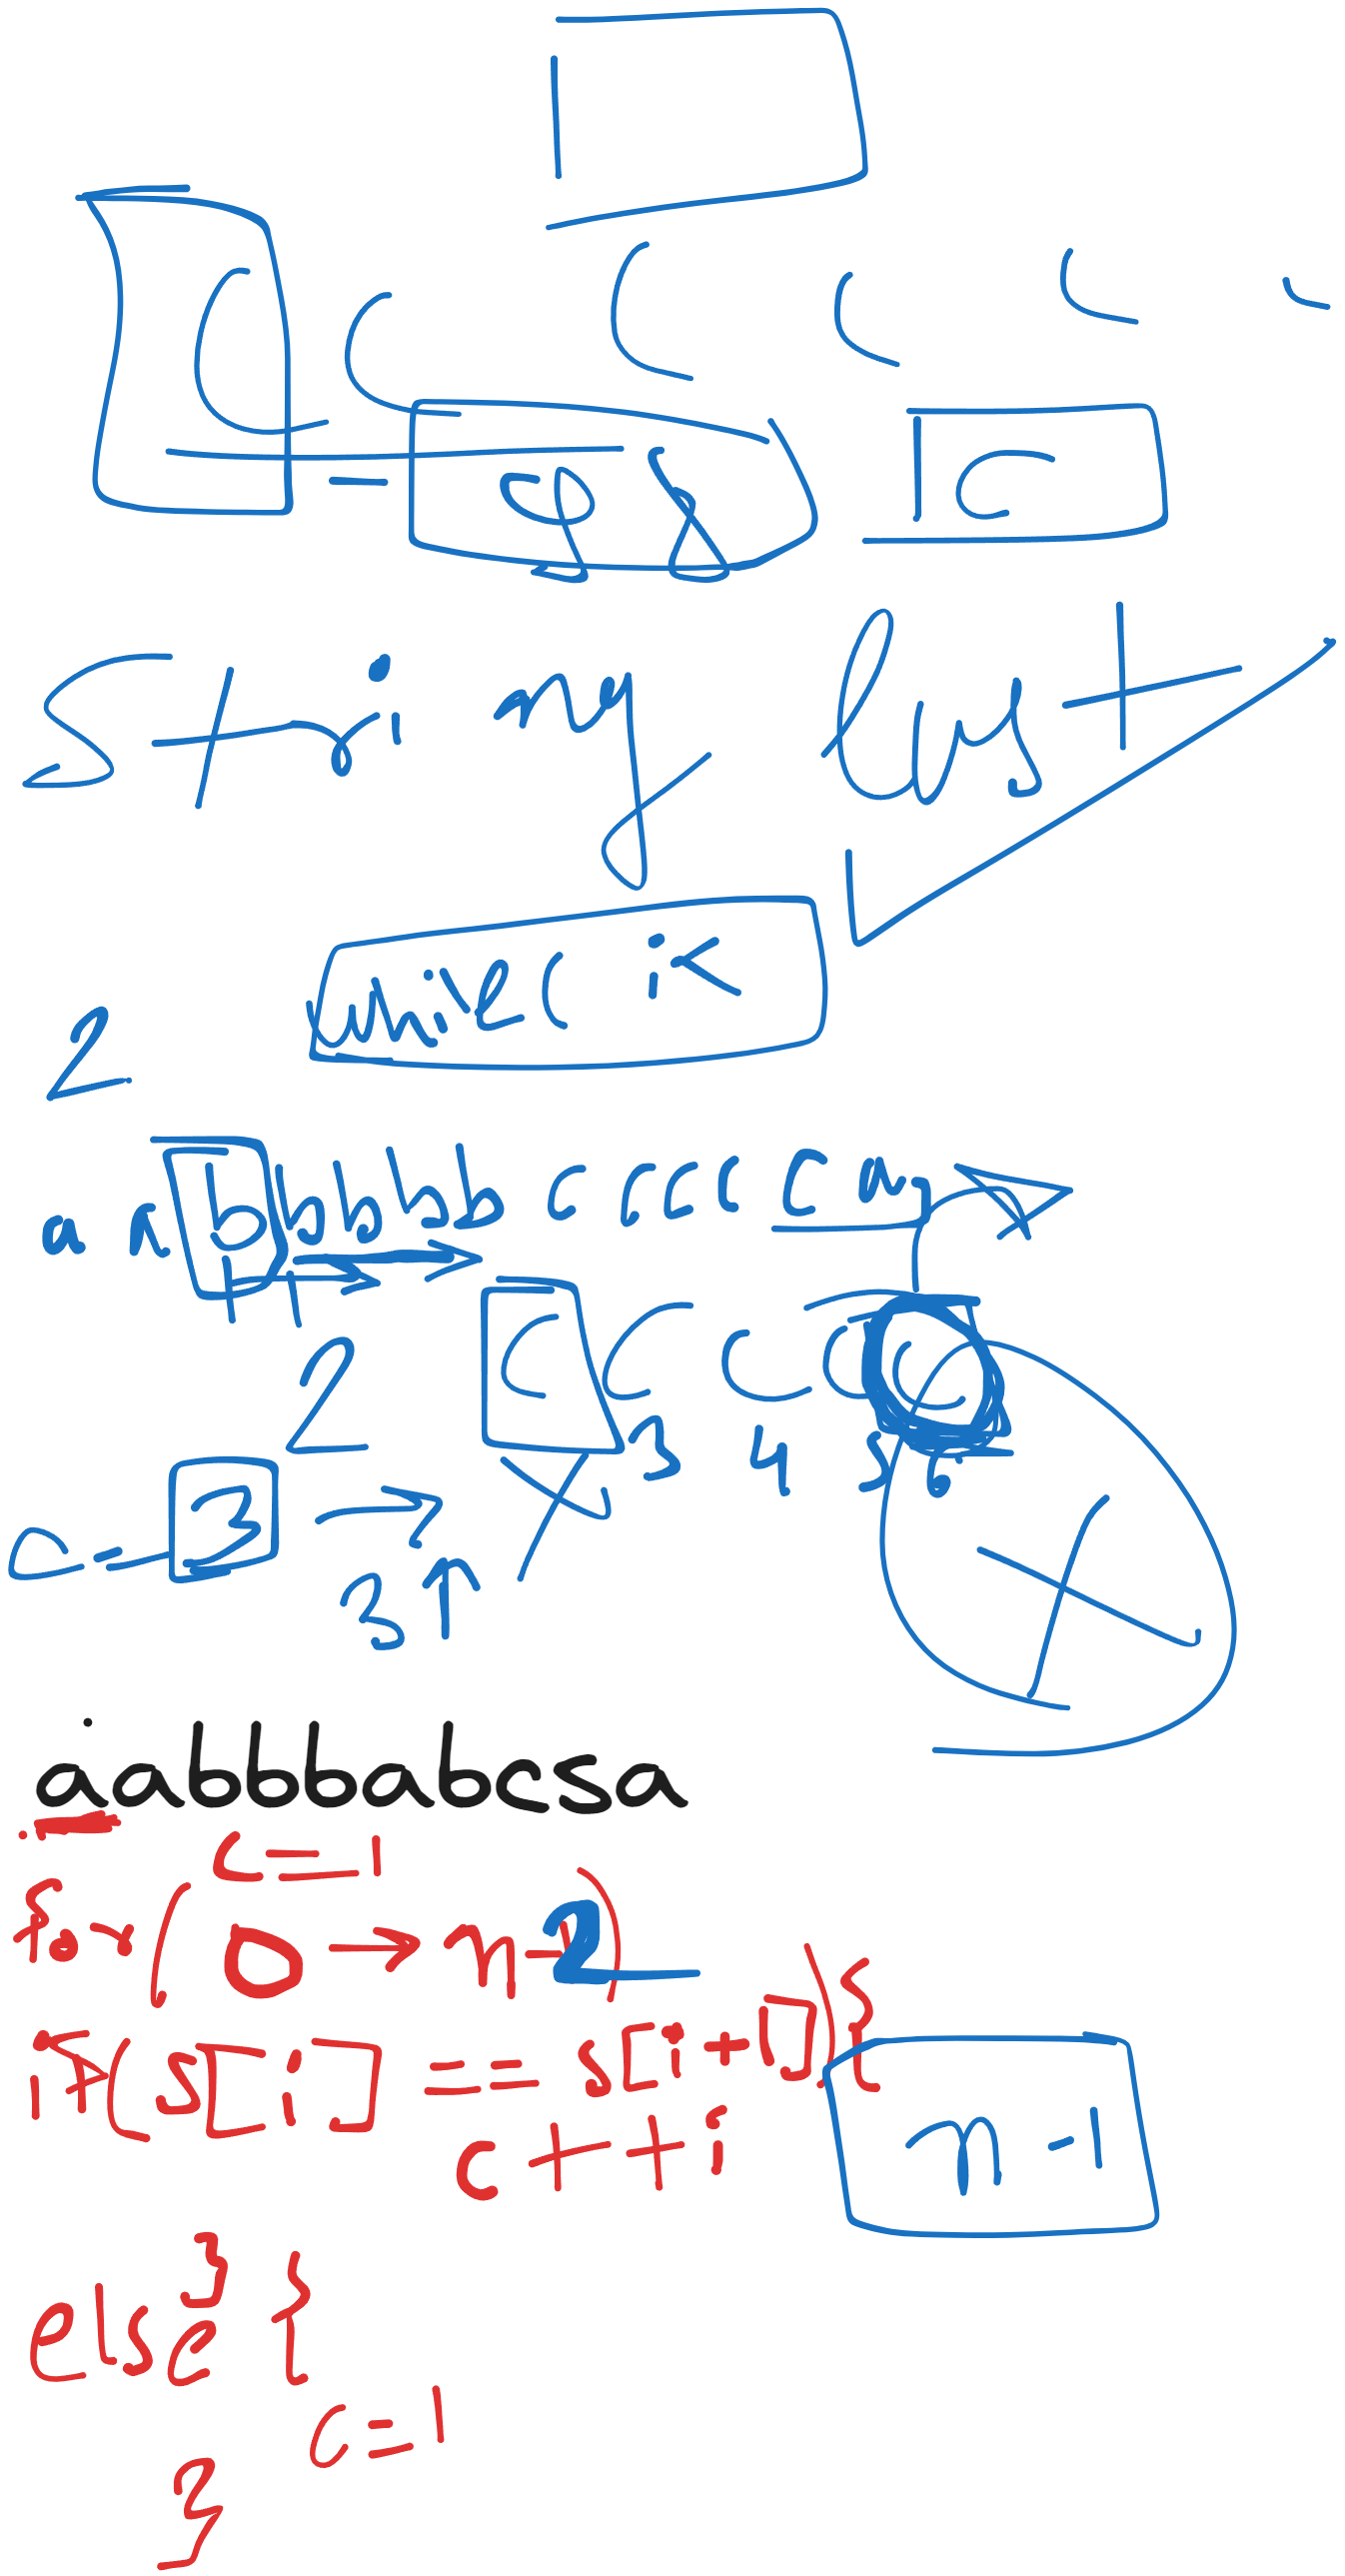 C C C C C C
C
String last
while( i<
2
a a b b b b b c c c c c
2 C C C C C
3 4 5 6
c = 3 →
3↑
aabbbabcsa
c=1
for( 0 → n-2)
if(s[i] == s[i+1]){
c++;
n-1
}
else {
c=1
}